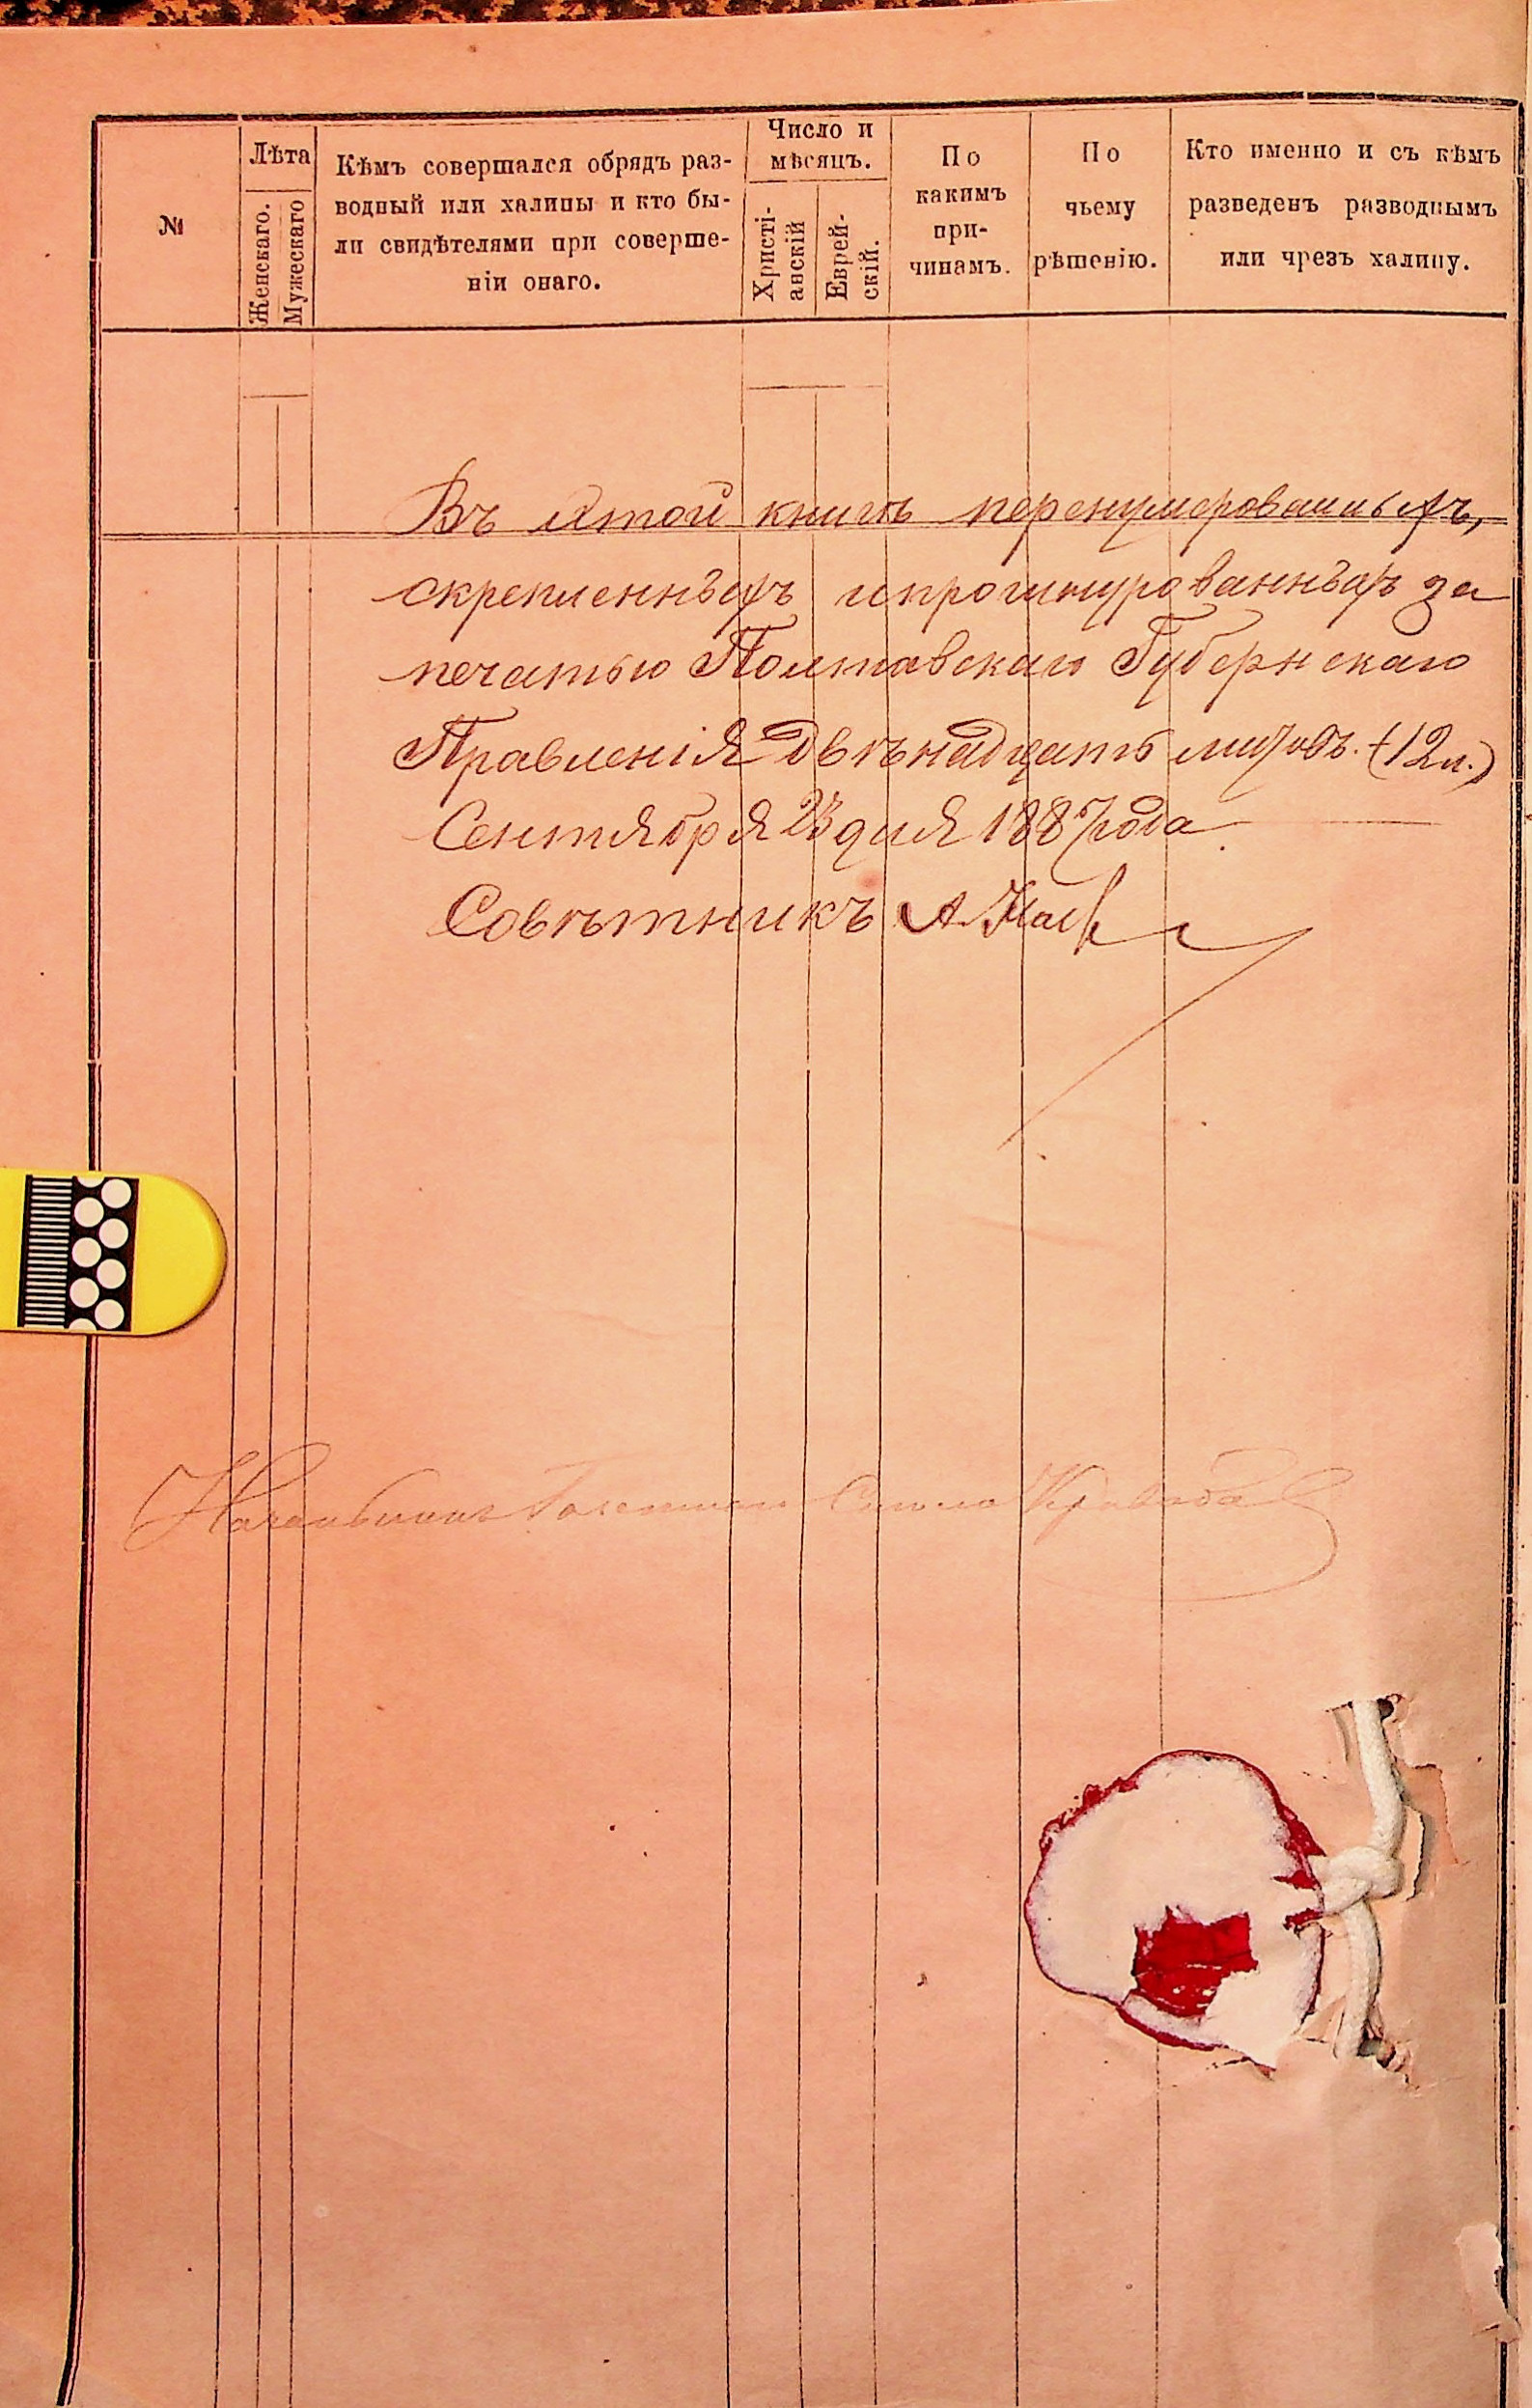 №
Лѣта
Женскаго.
Мужескаго
Кѣмъ совершался обрядъ раз-
водный или халицы и кто бы-
ли свидѣтелями при соверше-
ніи онаго.
Число и
мѣсяцъ.
Христі-
анскій
Еврей-
скій.
По
какимъ
при-
чинамъ.
По
чьему
рѣшенію.
Кто именно и съ кѣмъ
разведенъ разводнымъ
или чрезъ халицу.
Въ этой книгѣ перенумерованныхъ,
скрепленныхъ и прошнурованныхъ за
печатью Полтавскаго Губернскаго
Правленія двѣнадцать листовъ. (12 л.)
Сентября 23 дня 1887 года
Совѣтникъ А.